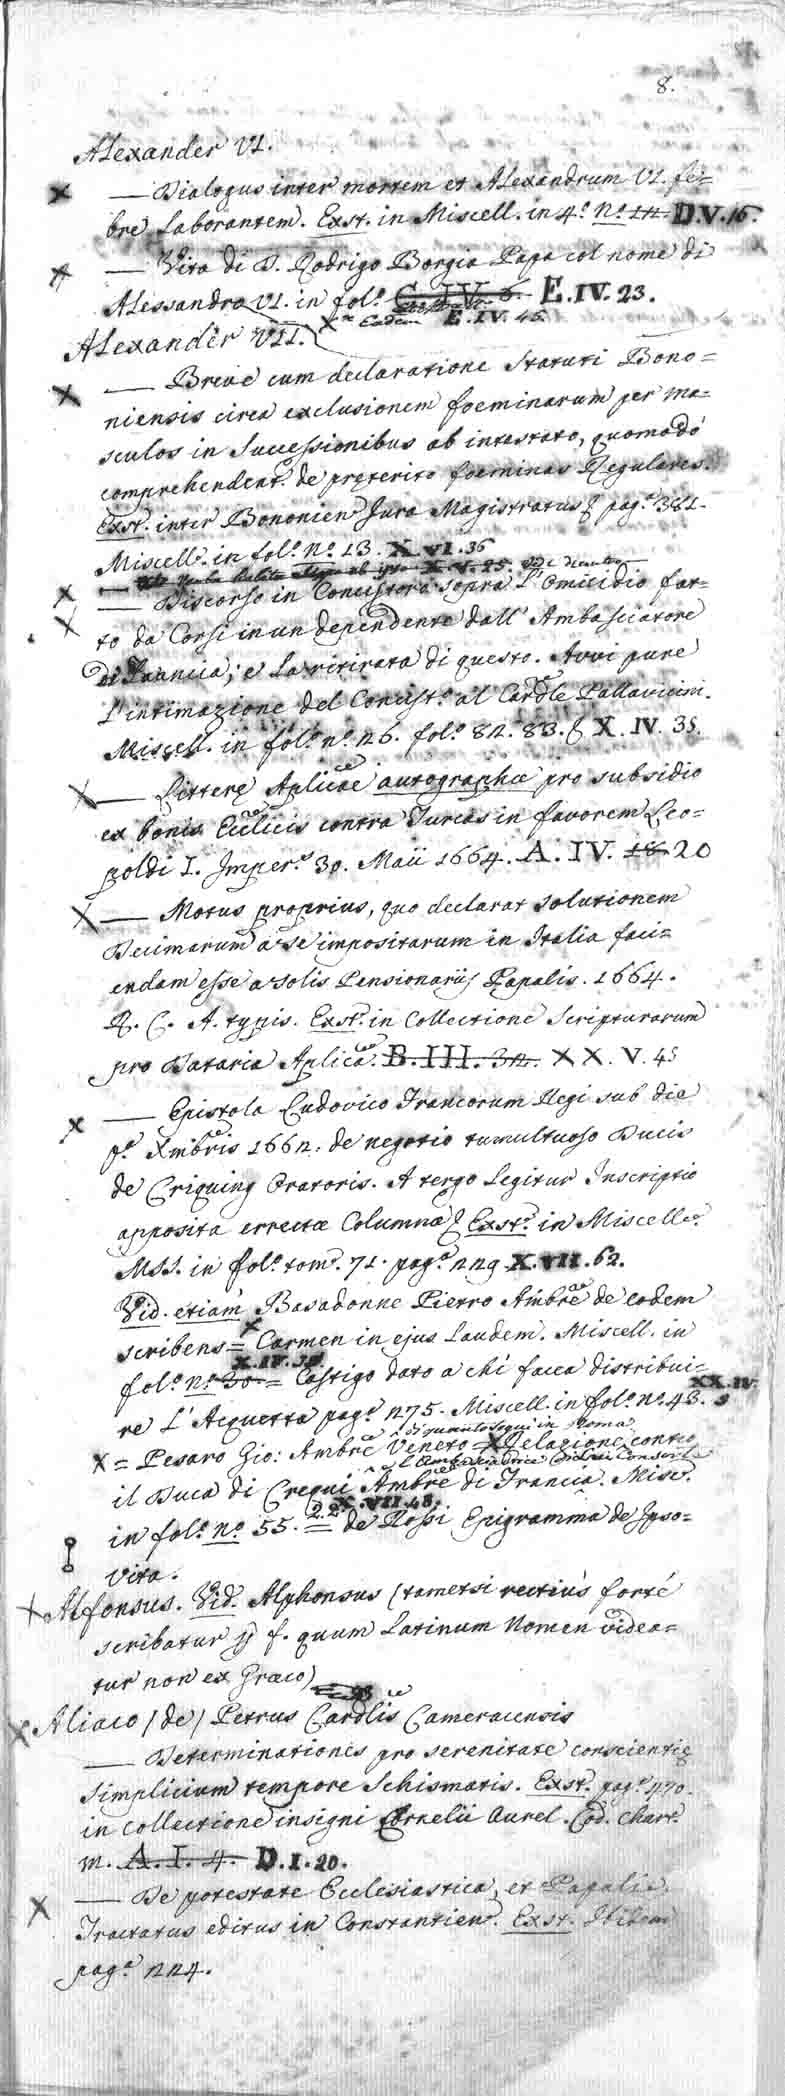 8.
Alexander VI.
X — Dialogus inter mortem et Alexandrum VI. fe=
bre laborantem. Exst. in Miscell. in 4.º nº 12. D.V.16.
X — Vita di D. Rodrigo Borgia Papa col nome di
Alessandro VI. in fol.º C. IV. 6. E.IV.23.
X Eadem E.IV.45.
Alexander VII.
X — Breve cum declaratione Statuti Bono=
niensis circa exclusionem foeminarum per ma=
sculos in Successionibus ab intestato, quomodo
comprehendat de pręterito foeminas Regulares.
Exst. inter Bononien Jura Magistratus pag.ª 381.
Miscell. in fol.º nº 13. X.VI.36
X — ab ipso X.V.25.
X — Discorso in Concistoro sopra l'Omicidio fat=
to da Corsi in un dependente dall'Ambasciatore
di Francia; e la ritirata di questo. Avvi pure
l'intimazione del Concist.º al Cardle Pallavicini.
Miscell. in fol.º nº 26. fol.º 82. 83. X.IV.35.
X — Litterę Aplicae autographae pro subsidio
ex bonis Ecclicis contra Turcas in favorem Leo=
poldi I. Imper.s 30. Maii 1664. A.IV. 18 20
X — Motus proprius, quo declarat solutionem
Decimarum a se impositarum in Italia faci=
endam esse a solis Pensionariis Papalis. 1664.
R. C. A. typis. Exst. in Collectione Scripturarum
pro Dataria Aplica. B.III.32. XX.V.45
X — Epistola Ludovico Francorum Regi sub die
pª Xmbris 1662. de negotio tumultuoso Ducis
de Criquing Oratoris. A tergo legitur Inscriptio
apposita erectae Columnae Exst. in Miscell.
MSS. in fol.º tom. 71. pag.ª 229 X.VII.62.
Vid. etiam Basadonne Pietro Ambre de eodem
scribens = X Carmen in ejus laudem. Miscell. in
X.IV.39
fol.º nº 30. = Castigo dato a chi facea distribui=
XX.IV.
re l'Acquetta pag.ª 275. Miscell. in fol.º nº 43. 9
di quanto seguì in Roma
X = Pesaro Gio: Ambre Veneto = X Relazione contro
il Duca di Crequi Ambre di Francia. Misc.
X.VII.48.
in fol.º nº 55. 22 = de Rossi Epigramma de Ipso=
vita.
X Alfonsus. Vid. Alphonsus (tametsi rectius forté
scribatur f. quum Latinum Nomen videa=
tur non ex Graeco)
X Aliaco (de) Petrus Cardlis Cameracensis
— Determinationes pro serenitate conscientię
simplicium tempore Schismatis. Exst. pag.ª 470.
in collectione insigni Cornelii Aurel. Cod. chart.
m. A.I.4. D.I.20.
X — De potestate Ecclesiastica, et Papali
Tractatus editus in Constantien. Exst. Ibidem
pag.ª 224.